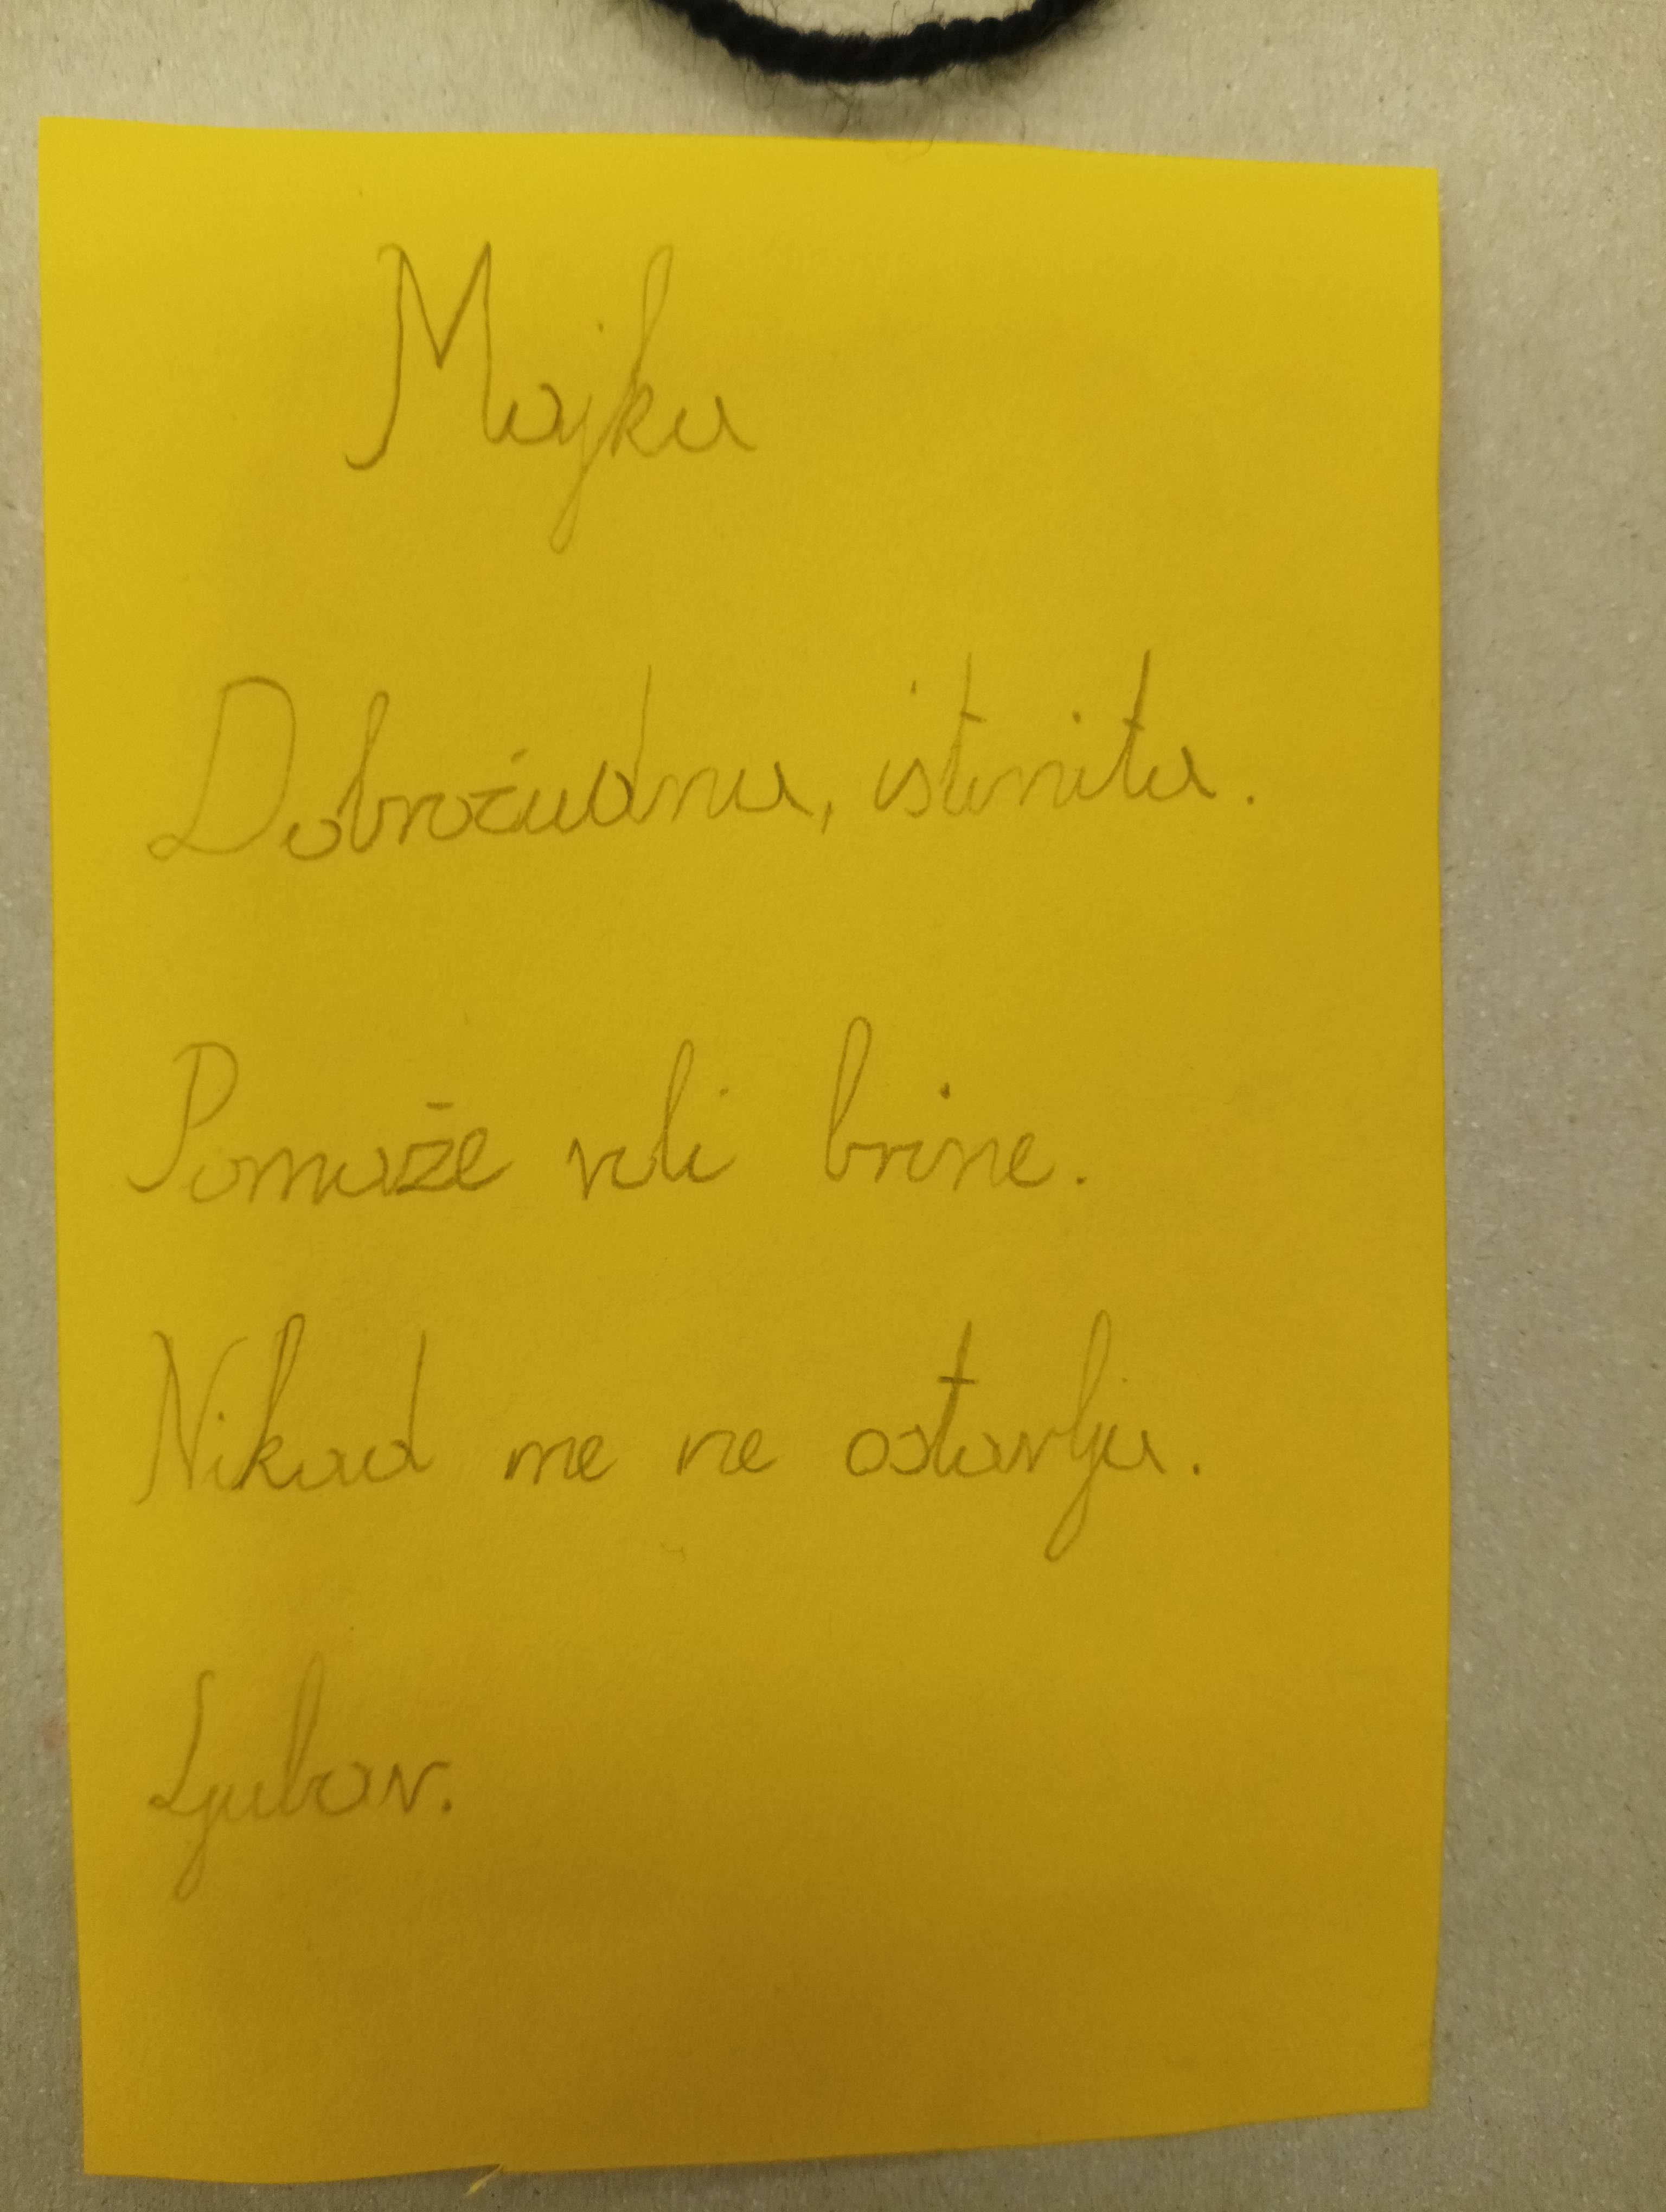 Majka
Dobroćudna, istinita.
Pomaže voli brine.
Nikad me ne ostavlja.
Ljubav.